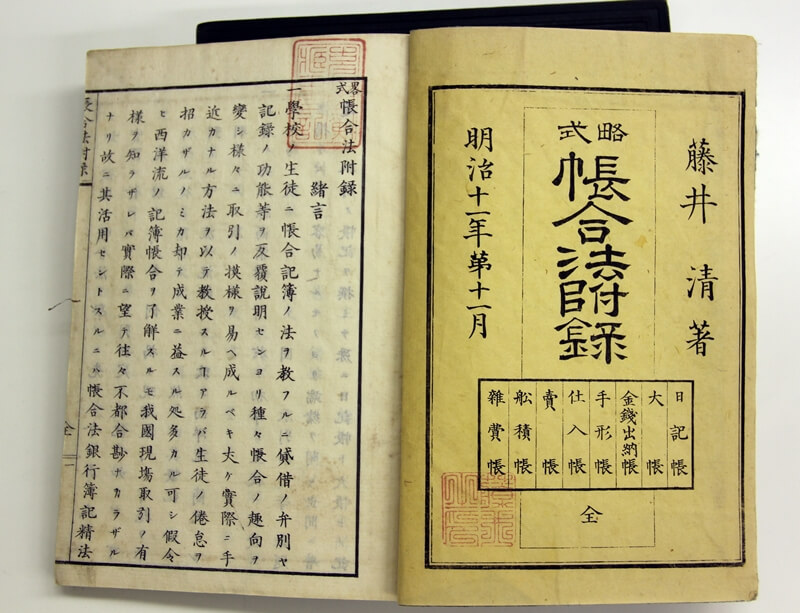 藤井 清著
略式
帳合法附録
明治十一年第十一月
日記帳
大帳
金錢出納帳
手形帳
仕入帳
賣帳
舩積帳
雜費帳
全
畧式帳合法附録
緒言
一學校ノ生徒ニ帳合記簿ノ法ヲ教フルニ貸借ノ弁別ヤ
記録ノ功能等ヲ反覆說明センヨリ種々帳合ノ趣向ヲ
變シ様々ニ取引ノ摸様ヲ易ヘ成ルベキ丈ケ實際ニ手
近カナル方法ヲ以テ教授スルヿアラバ生徒ノ倦怠ヲ
招カザルノミカ却テ成業ニ益スル処多カル可シ假令
ヒ西洋流ノ記簿帳合ヲ了解スルモ我國現塲取引ノ有
様ヲ知ラザレバ實際ニ望テ往々不都合尠ナカラザル
ナリ故ニ其活用セントスルニハ帳合法銀行簿記精法
帳合法附録
全 一